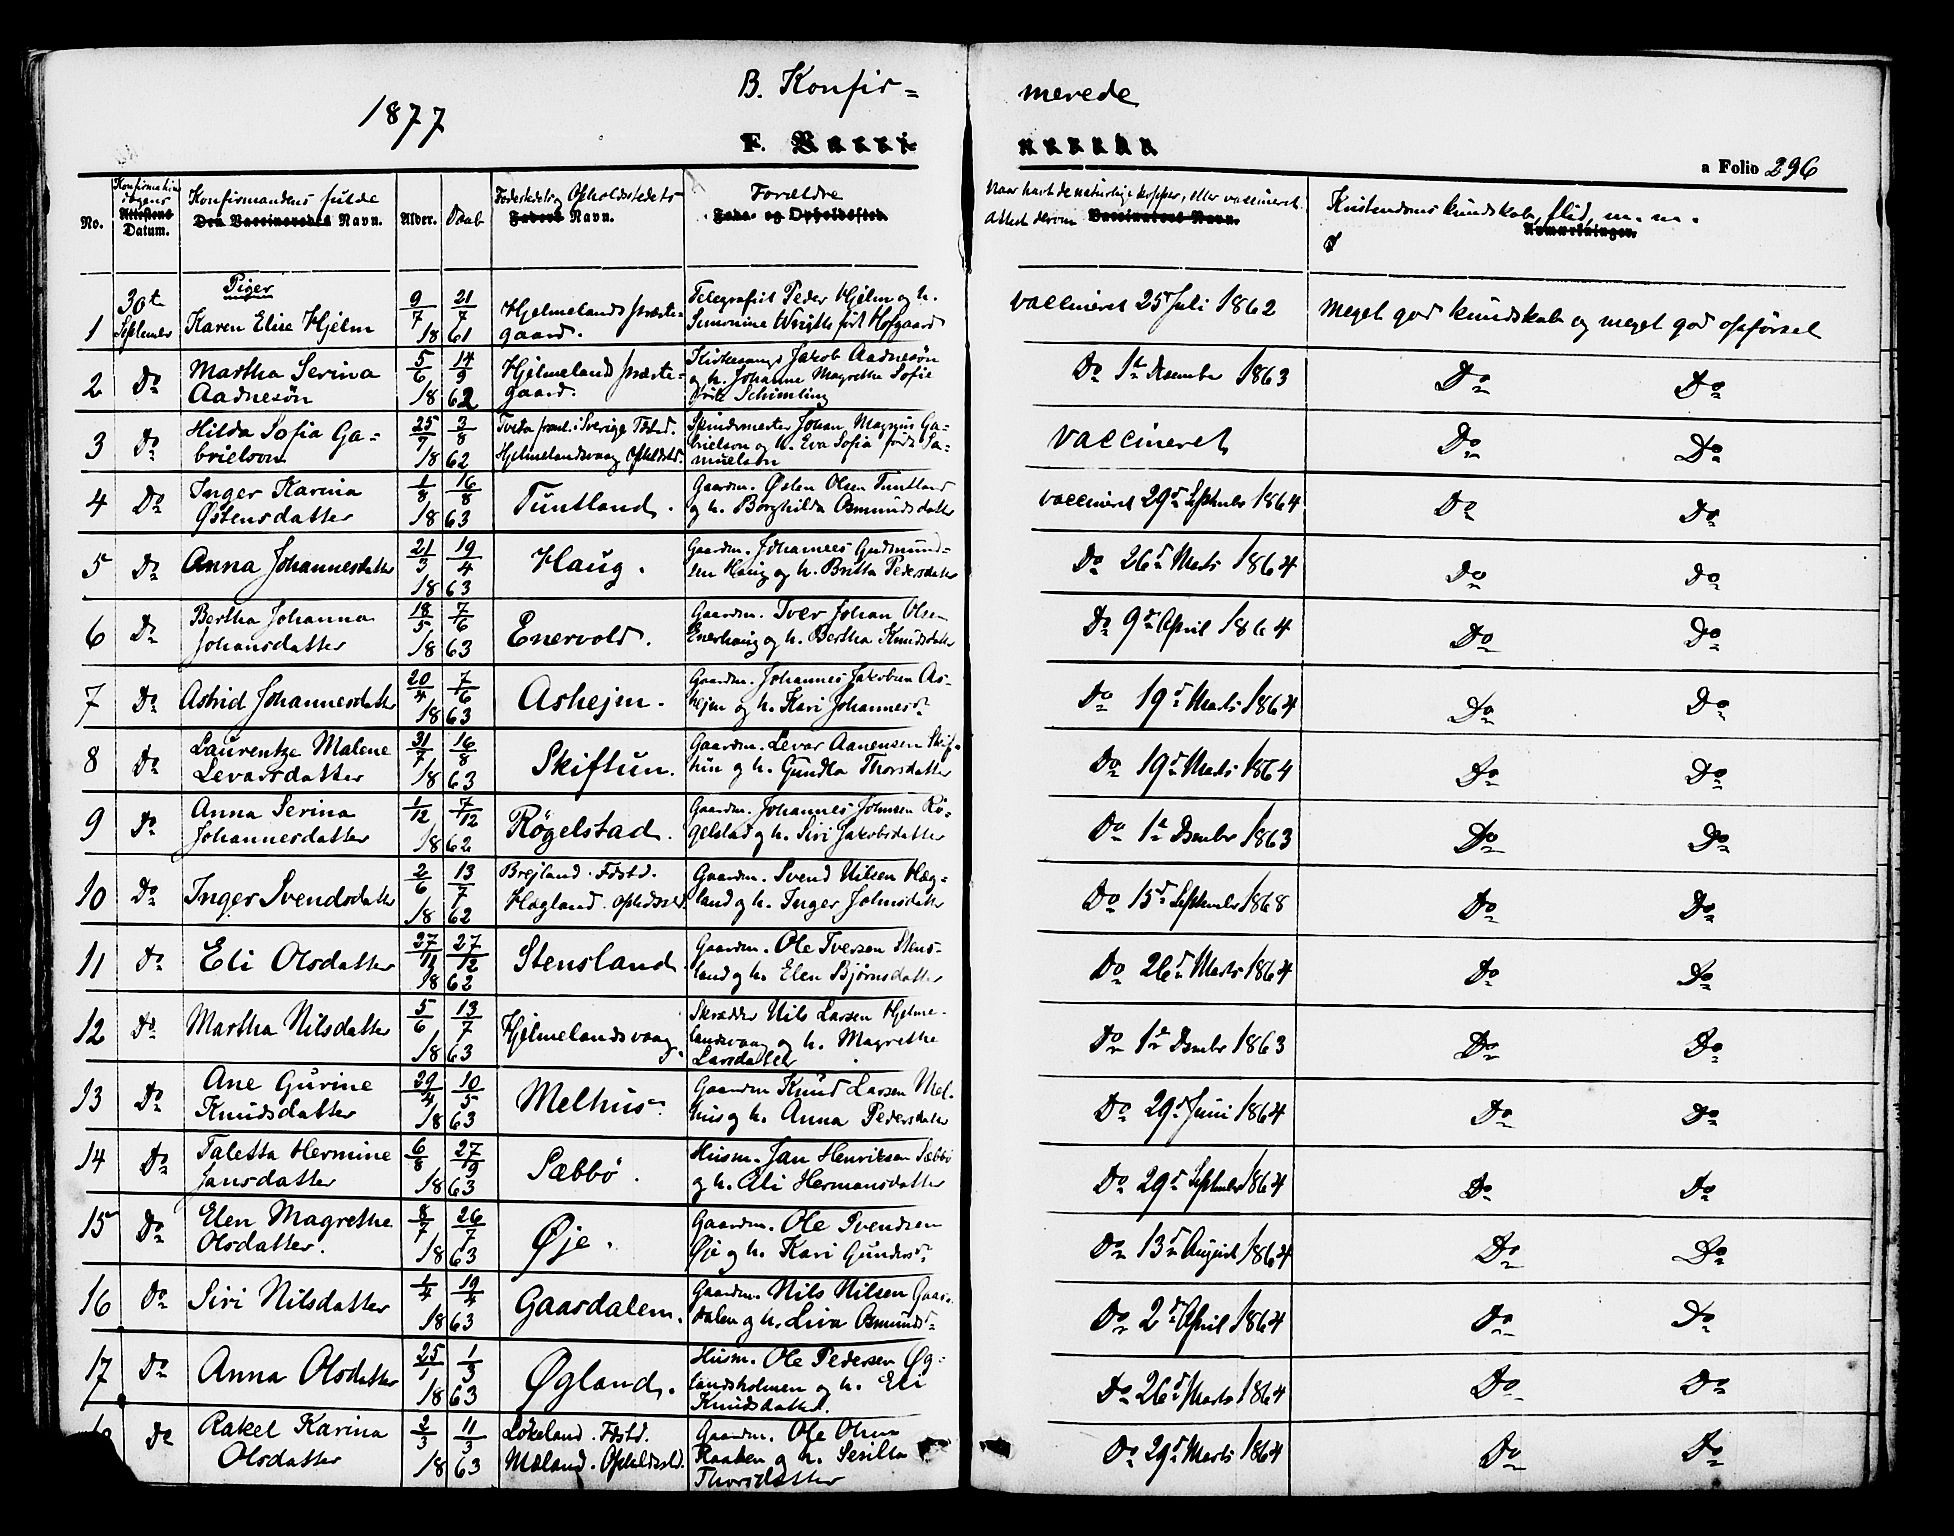 1877
B. Konfir= merede
F. Vacci-
a Folio 296
No. | Konfirmations dagens Attestens Datum. | Konfirmandens fulde Den Vaccineredes Navn. | Alder. | Daab | Fødested og Opholdsstedets Faders Navn. | Forældre Føde- og Opholdssted | Naar havt de naturlige kopper, eller vaccineret. Attest derom Vaccinateurs Navn. | Kristendoms kundskab, flid, m. m. Anmærkninger.
Piger
1 | 30te September | Karen Elise Hjelm | 9/7 21/7 1861 | Hjelmelands præste- gaard. | Telegrafist Peder Hjelm og h. Simonine født Hofgaard | vaccineret 25 Juli 1862 | Meget god kundskab og meget god opførsel
2 | Do | Martha Serina Aadnesøn | 5/6 14/9 1862 | Hjelmeland præste- gaard. | Kirkesanger Jakob Aadnesøn og h. Johanne Magrethe Sofie født Schimling | Do 1te Desember 1863 | Do Do
3 | Do | Hilda Sofia Ga= brielson | 25/7 3/8 1862 | i Sverige Fdstd. Hjelmelandsvaag Opholdstd. | Johan Magnus Ga- brielson og h. Eva Sofia født Sa- muelson | vaccineret | Do Do
4 | Do | Inger Karina Østensdatter | 1/8 16/8 1863 | Tuntland. | Gaardm. Østen Olsen Tuntland og h. Borghilda Osmundsdatter | vaccineret 29d September 1864 | Do Do
5 | Do | Anna Johannesdatter | 21/3 19/4 1863 | Haug. | Gaardm. Johannes Gudmund- sen Haug og h. Britta Pedersdatter | Do 26d Marts 1864 | Do Do
6 | Do | Bertha Johanna Johansdatter | 18/5 7/6 1863 | Enervold. | Gaardm. Iver Johan Olsen Enerhaug og h. Bertha Knudsdatter | Do 9d April 1864 | Do Do
7 | Do | Astrid Johannesdatter | 20/4 7/6 1863 | Ashejm. | Gaardm. Johannes Jakobsen As- hejm og h. Kari Johannesd. | Do 19d Marts 1864 | Do Do
8 | Do | Laurentze Malene Levarsdatter | 31/7 16/8 1863 | Skiftun. | Gaardm. Levar Aanensen Skif- tun og h. Gundla Thorsdatter | Do 19d Marts 1864 | Do Do
9 | Do | Anna Serina Johannesdatter | 1/12 7/12 1862 | Røgelstad. | Gaardm. Johannes Johnsen Rø- gelstad og h. Siri Jakobsdatter | Do 1te Dsember 1863 | Do Do
10 | Do | Inger Svendsdatter | 2/6 13/7 1862 | Brejland. Fdstd. Hægland. Opholdsstd. | Gaardm. Svend Nilsen Hæg- land og h. Inger Johnsdatter | Do 15d September 1868 | Do Do
11 | Do | Eli Olsdatter | 27/11 27/12 1862 | Stensland. | Gaardm. Ole Iversen Stens- land og h. Elen Bjørnsdatter | Do 26d Marts 1864 | Do Do
12 | Do | Martha Nilsdatter | 5/6 13/7 1863 | Hjelmelandsvaag. | Skrædder Nils Larsen Hjelme- landsvaag og h. Magrethe Larsdatter | Do 1te Dsember 1863 | Do Do
13 | Do | Ane Gurine Knudsdatter | 29/4 10/5 1863 | Melhus | Gaardm Knud Larsen Mel- hus og h. Anna Pedersdatter | Do 29d Juni 1864 | Do Do
14 | Do | Taletta Hermine Jansdatter | 6/8 27/9 1863 | Sæbbø. | Husm. Jan Henriksen Sæbbø og h. Eli Hermansdatter | Do 29d September 1864 | Do Do
15 | Do | Elen Magrethe Olsdatter. | 8/7 26/7 1863 | Øje. | Gaardm. Ole Svendsen Øje og h. Kari Gundersd. | Do 13d August 1864 | Do Do
16 | Do | Siri Nilsdatter | 1/4 19/4 1863 | Gaardalem. | Gaardm. Nils Nilsen Gaar- dalen og h. Liva Osmundsd. | Do 2d April 1864 | Do Do
17 | Do | Anna Olsdatter | 25/1 1/3 1863 | Øgland. | Husm. Ole Pedersen Øg- landsholmen og h. Eli Knudsdatter. | Do 26d Marts 1864 | Do Do
Do | Rakel Karina Olsdatter | 2/3 11/3 1863 | Løkeland. Fdstd. Mæland. Opholdsstd. | Gaardm. Ole Olsen Raaken og h. Serilla Thorsdatter | Do 29d Marts 1864 | Do Do